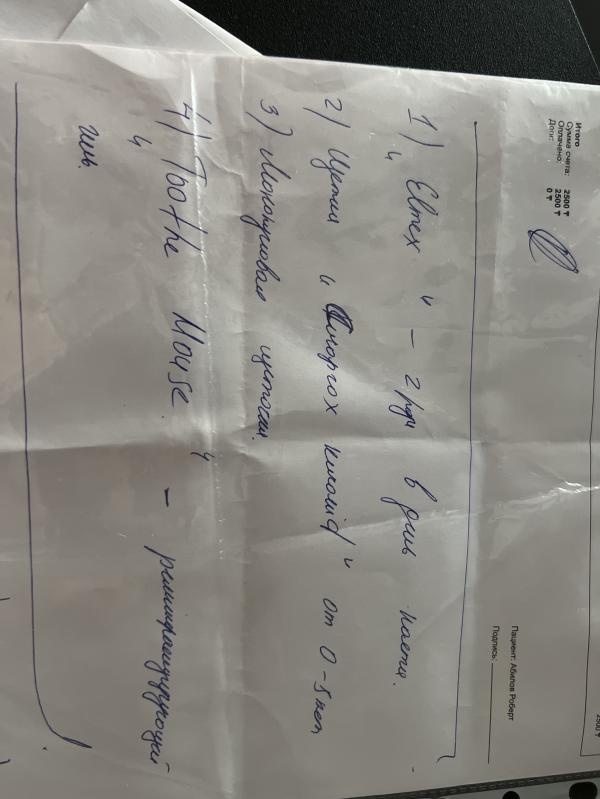 Итого
Сумма счета: 2500 ₸
Оплачено: 2500 ₸
Долг: 0 ₸
2500 ₸
Пациент: Абилов Роберт
Подпись:
1) "Elmex" – 2 р/д в день паста.
2) Щетка "Curaprox" от 0-5 лет
3) Монопучковая щеточка.
4) "Toothe Mouse" – реминерализирующий
гель.